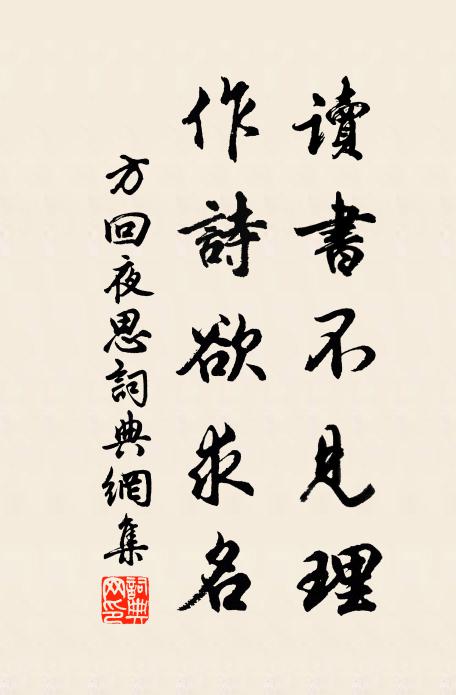 讀書不見理
作詩欲求名
方回夜思詞典網集
詞典網印